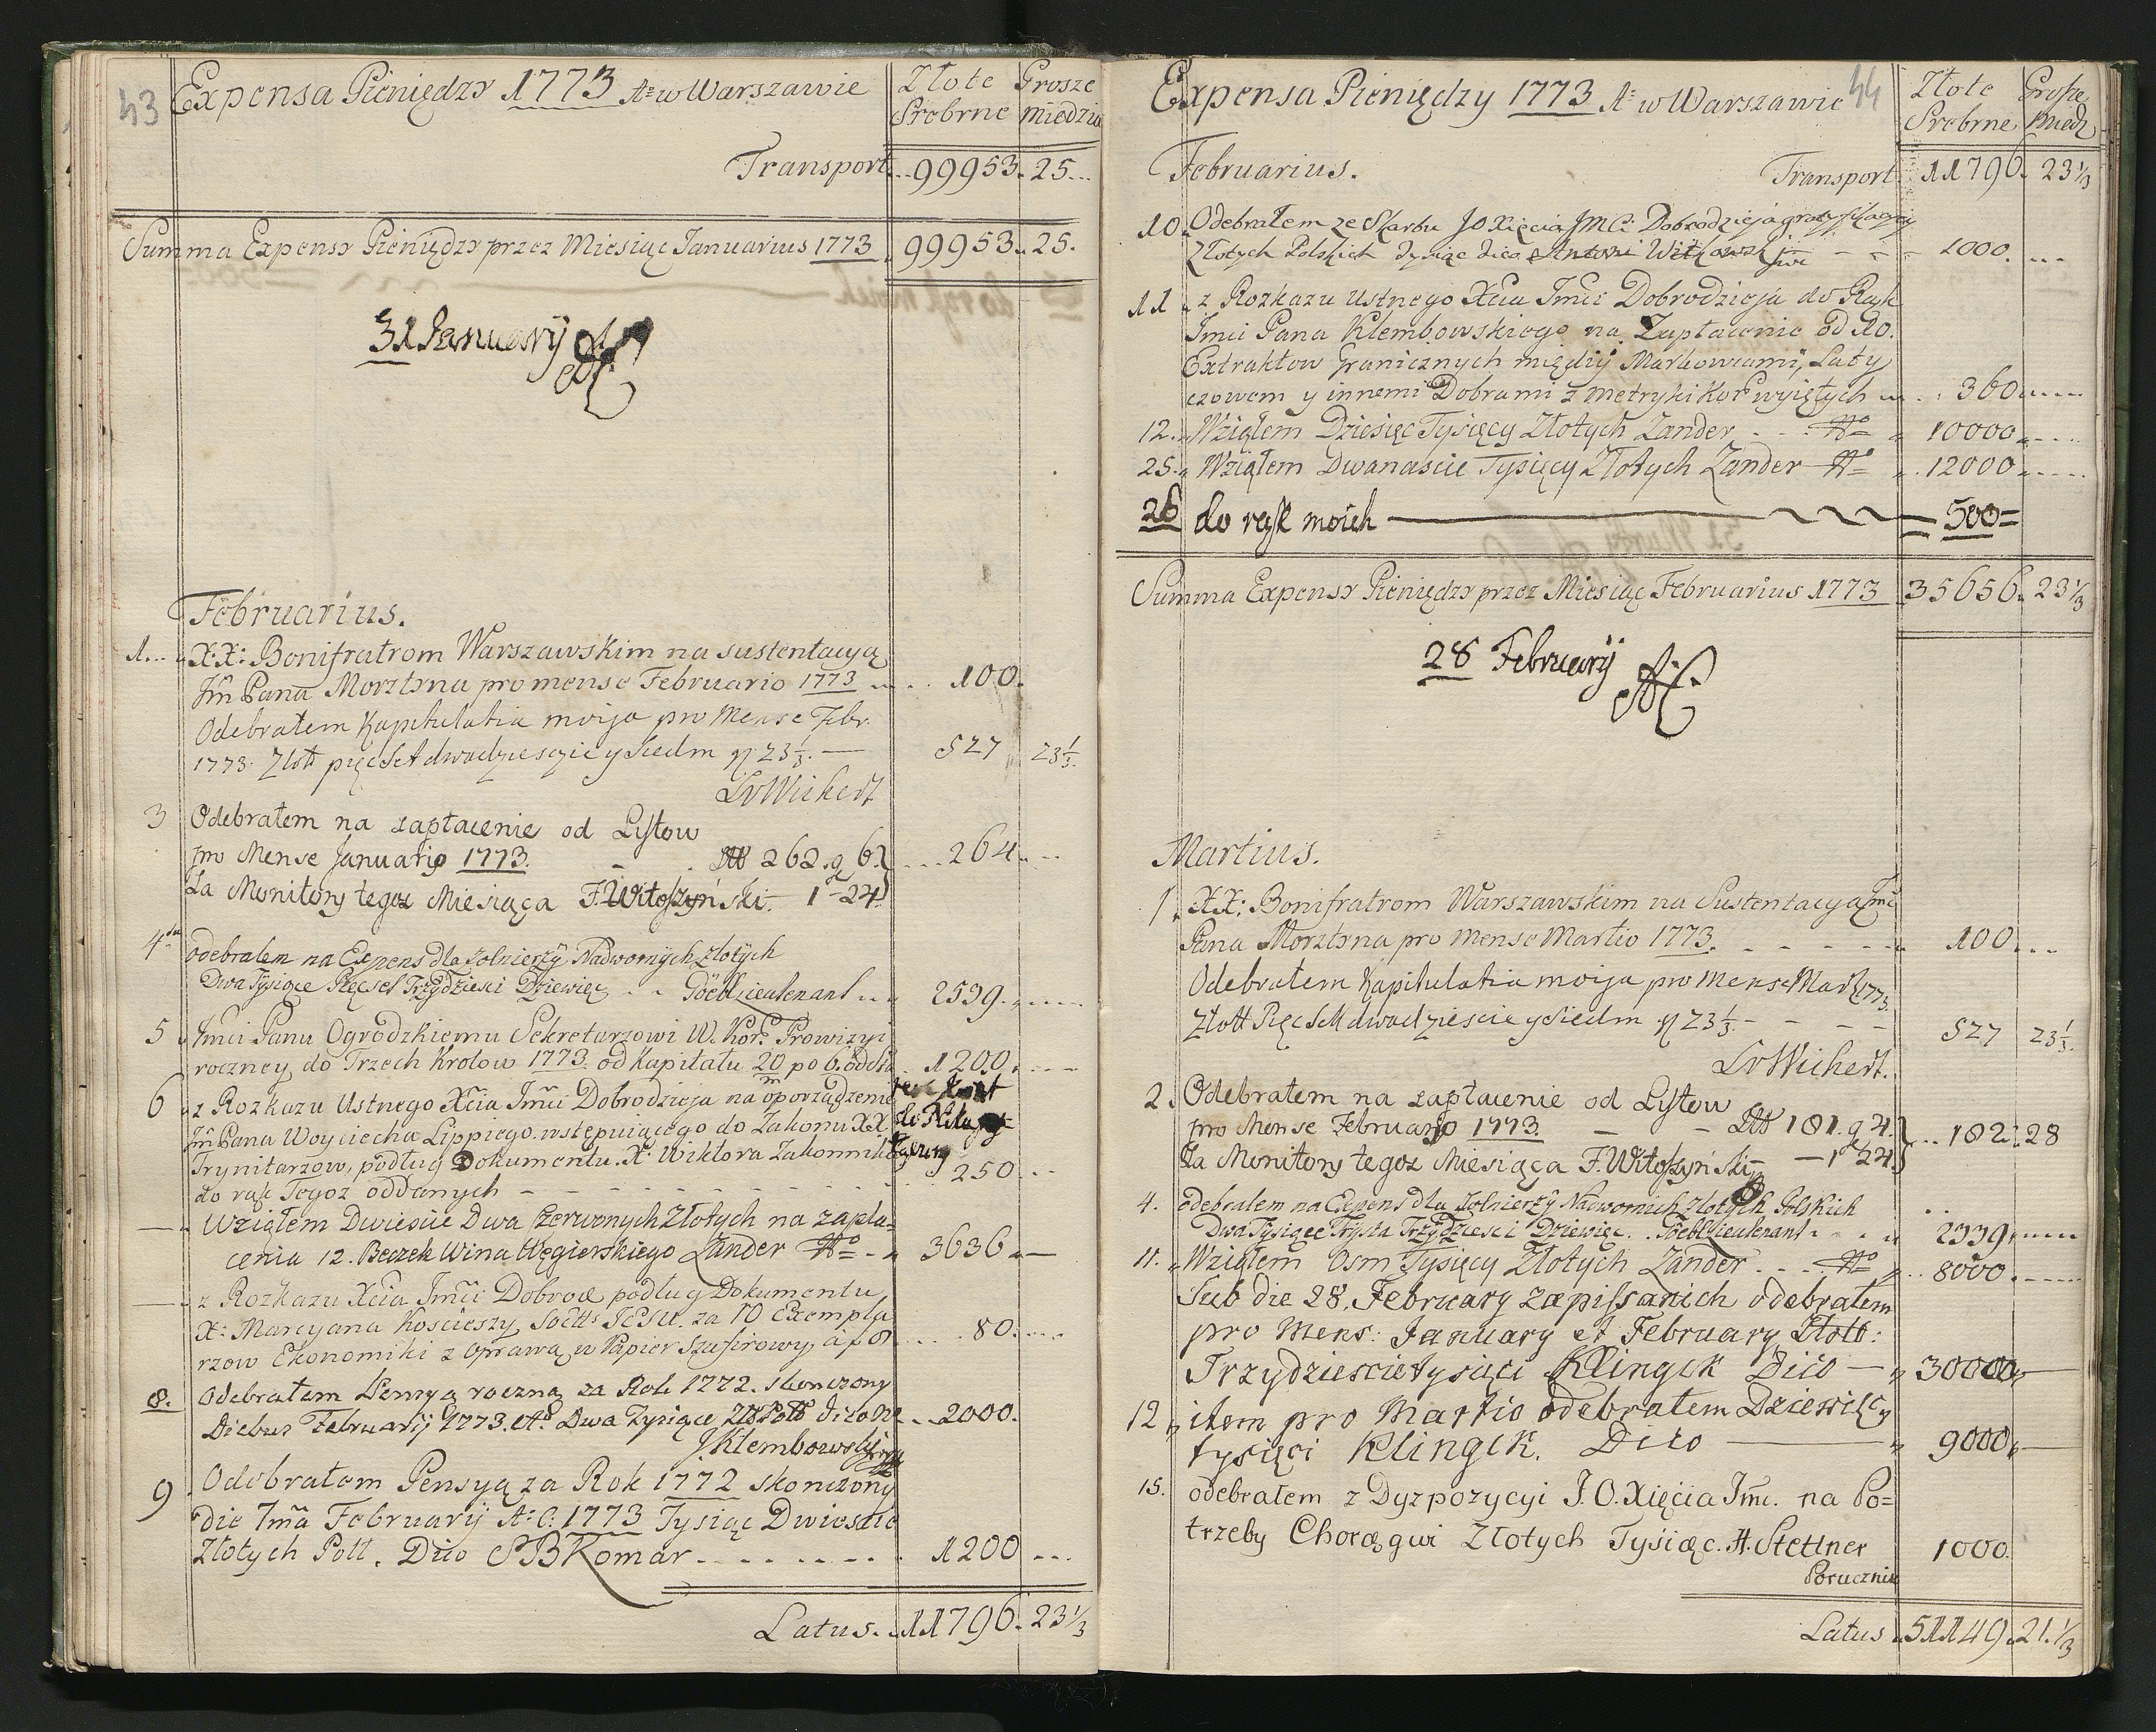 43
Expensa Pieniędzy 1773 Aº w Warszawie
Złote Grosze
Srebrne miedzia
Transport 99953. 25
Summa Expensy Pieniędzy przez Miesiąc Januarius 1773 99953. 25.
31 January
Februarius.
1. X:X: Bonifratrom Warszawskim na sustentacyą
Jm Pana Morztyna pro mense Februario 1773 100.
Odebrałem Kapitulatia moija pro Mense Febr.
1773. Złott pięcset dwadziesczie y Siedm gr 23 1/3. 527 23 1/3.
LvWichert
3 Odebrałem na zapłacenie od Lystow
pro Mense Januario 1773. 262. g 6. 264
Za Monitory tegoz Miesiąca F. Witoszyński. 1 - 24
4 odebralem na Expens dla zolnierzy Nadwornych złotych
Dwa Tysiące Pięcset Trzydziesci Dziewięc Göebl lieutenant 2539.
5 Jmci Panu Ogrodzkiemu Sekretarzowi W. Kor: Prowizyi
roczney do Trzech Krolow 1773. od Kapitału 20/m po 6. 1200.
6 z Rozkazu Ustnego Xcia Jmci Dobrodzieja na oporządzenie
Jm Pana Woyciecha Lippiego wstępuiącego do Zakonu XX
Trynitarzow, podług Dokumentu X: Wiktora Zakonnika
do rąk Tegoz oddanych 250
Wziąłem Dwiescie Dwa Czerwonych Złotych na zapła-
cenia 12. Beczek Wina Węgierskiego Zander 3636
z Rozkazu Xcia Jmci Dobrod podług Dokumentu
X: Marcyana Koscieszy Soctis Jesu. za 10 Exempla
rzow Ekonomiki z oprawą w Papier Szafirowy, á f 8 80.
8. Odebrałem Pensyą roczną za Rok 1772. skonczony
Diebus Februarij 1773. Aº Dwa Tysiące 2000.
JKlembowski
9 Odebrałem Pensyą za Rok 1772 skonczony
die 1ma Februarij A: C: 1773 Tysiąc Dwiescie
Złotych Poll. Dico SBKomar 1200
Latus. 11796. 23 1/3
44
Expensa Pieniędzy 1773 Aº w Warszawie
Złote Grosze
Srebrne Miedz
Februarius. Transport 11796. 23 1/3
10. Odebrałem ze Skarbu JO Xięcia JMC: Dobrodzieja gratyfikacyi
Złotych Polskich Tysiąc dico Antoni Witkowski 1000.
11 z Rozkazu Ustnego Xcia Jmci Dobrodzieja do Rąk
Jmci Pana Klembowskiego na Zapłacenie od 20.
Extraktow Granicznych między Markowcami, Laty
czowem y innemi Dobrami z Metryki Kor wyiętych 360
12. Wziąłem Dziesięc Tysięcy Złotych Zander 10000
25. Wziąłem Dwanascie Tysięcy Złotych Zander 12000
26 do rąk moich 500
Summa Expensy Pieniędzy przez Miesiąc Februarius 1773 35656. 23 1/3
28 February
Martius.
1. XX: Bonifratrom Warszawskim na Sustentacyą Jmci
Pana Morztyna pro Mense Martio 1773. 100
Odebrałem Kapitulatia moija pro Mense Mart 1773.
Złott Pięcsett dwadziescie y Siedm gr 23 1/3. 527 23 1/3.
LvWichert.
2. Odebrałem na zapłacenie od Lystow
pro Mense Februario 1773. 181. g 4. 182. 28
Za Monitory tegoz Miesiąca F. Witoszyński 1 24.
4. odebralem na Expens dla zolnierzy Nadwornich Złotych Polskich
Dwa Tysiące Trysta Trzydziesci Dziewięc. Göebl lieutenant 2339
11. Wziąłem Osm Tysięcy Złotych Zander 8000
Sub die 28. February zapissanich odebrałem
pro Mens: January et February Złott:
Trzydziescie tysiąci Klingek Dico 30000
12 item pro Martio odebrałem Dziewięcy
tysięci Klingek. Dico 9000
15. odebrałem z Dyzpozycyi J.O. Xięcia Jmc. na Po=
trzeby Chorągwi Złotych Tysiąc. H. Stettner 1000.
Porucznik
Latus 51149. 21. 1/3